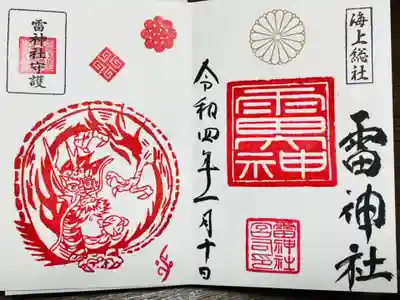 海上総社
雷神社
雷神
雷神社
宮司印
令和四年十一月十日
雷神社守護